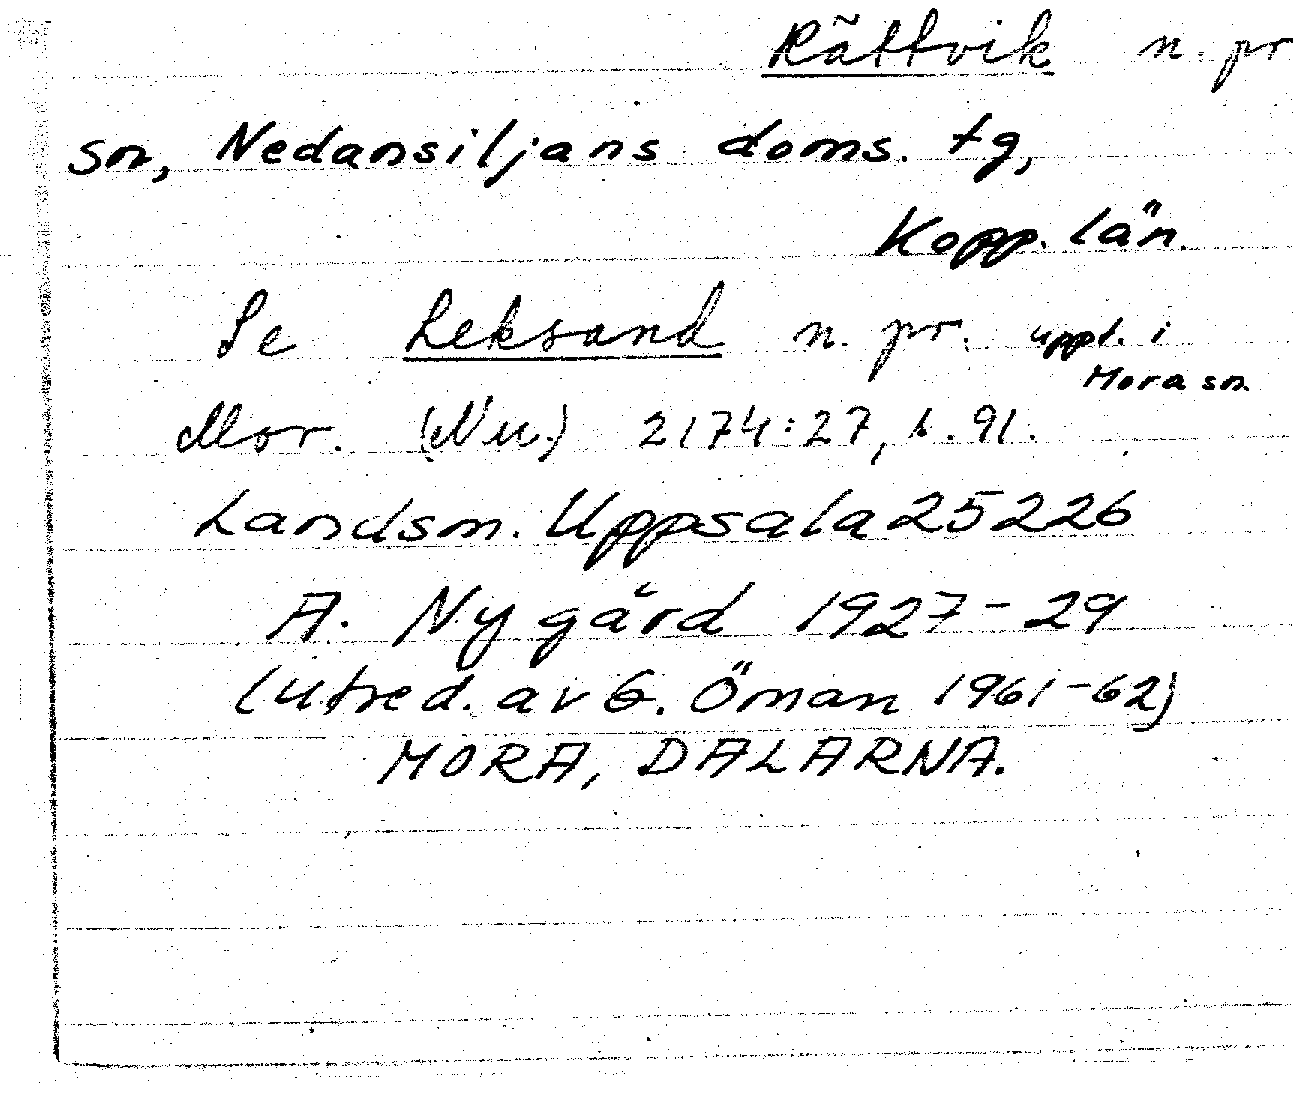 Rättvik n. pr
sn, Nedansiljans doms. tg,
Kopp. län.
Se Leksand n. pr. uppt. i
Mora sn.
Mor. (Nu.) 2174:27, b. 91.
Landsm. Uppsala 25226
A. Nygård 1927-29
(utred. av G. Öman 1961-62)
MORA, DALARNA.